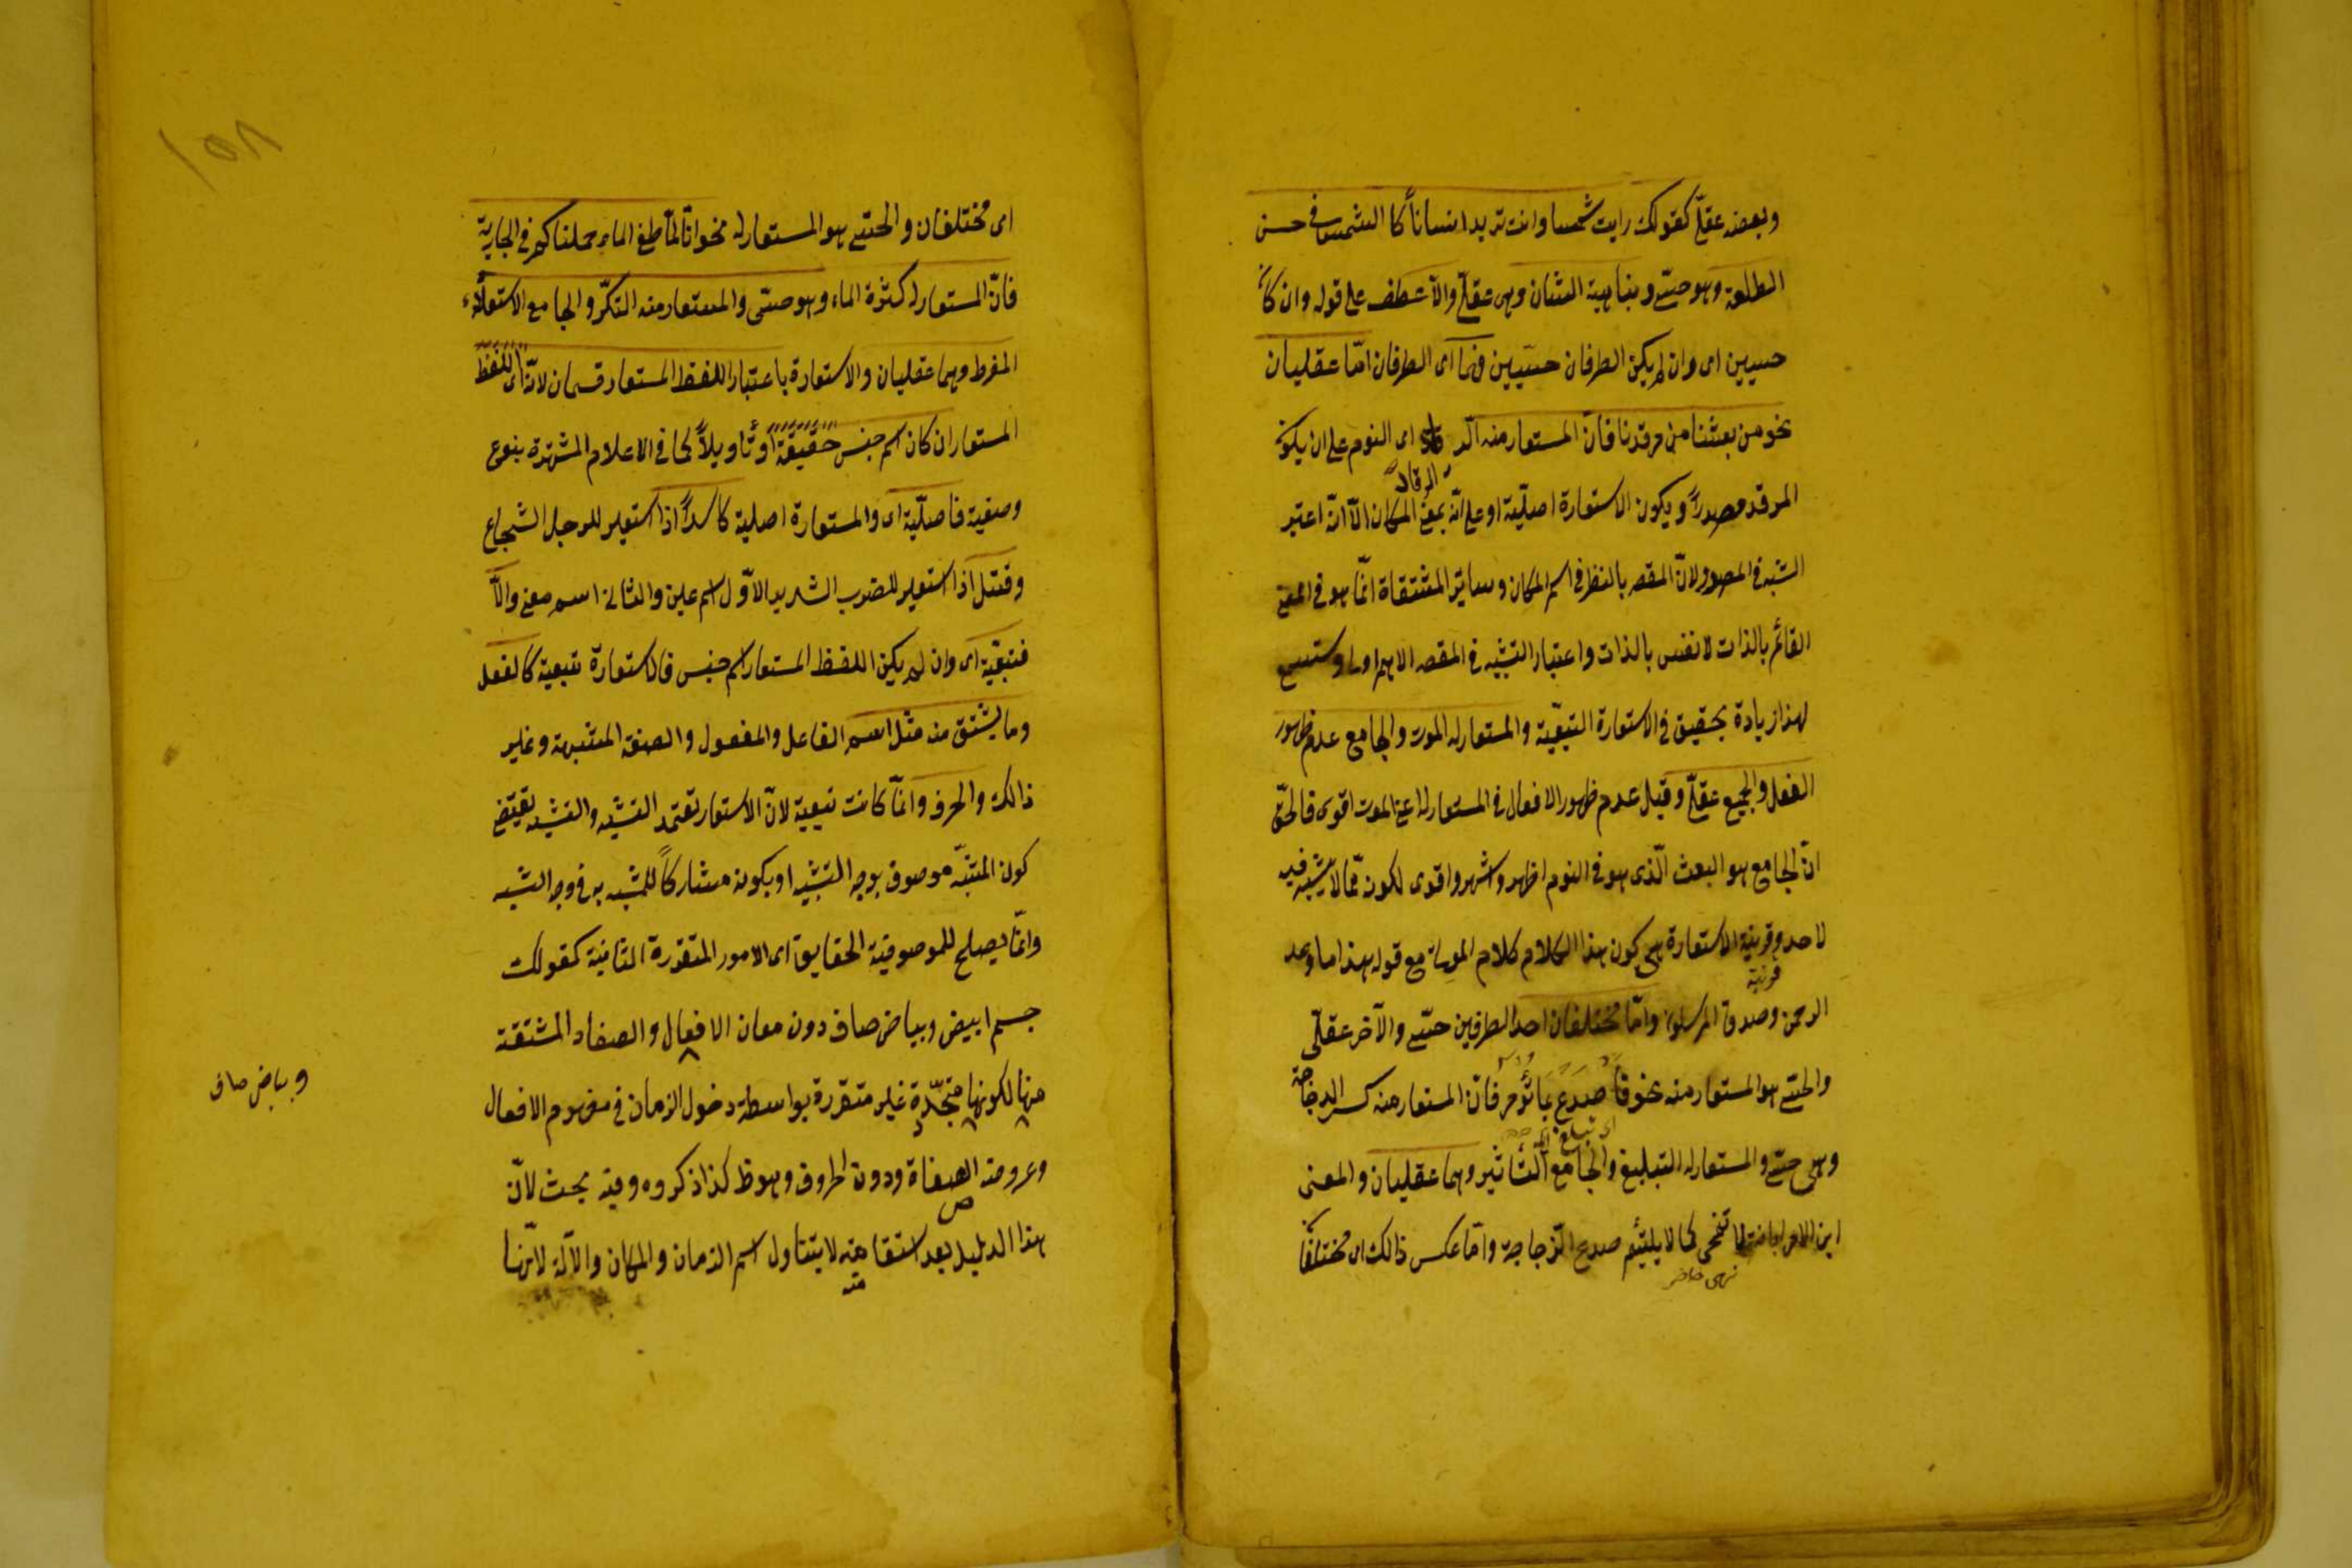 وبعضه عقلّي كقولك رايت شمسا وانت تريد انساناً كا الشمس في حسن
الطلعة وهو حسّي ونباهية الشان وهى عقلّي والاّ عطف على قوله وان كانا
حسيين اى وان لم يكن الطرفان حسّيين فهما اى الطرفان امّا عقليان
نحو من بعثنا من مرقدنا فانّ المستعار منه الرقاد اى النوم على ان يكون
المرقد مصدراً ويكون الاستعارة اصلّية او على انّه بمعنى المكان الاّ انّه اعتبر
الرقاد
التشبيه في المصدر لانّ المقصد بالنظر في اسم المكان وساير المشتقاة انّما هو في المعنى
القائم بالذات لا نفس بالذات واعتبار التشبيه في المقصد الاهم اولى وستسمع
لهذا زيادة تحقيق في الاستعارة التبعّية والمستعار له الموت والجامع عدم ظهور
الفعل والجميع عقلّي وقيل عدم ظهور الافعال في المستعار له اعنى الموت اقوى فالحقّ
انّ الجامع هو البعث الّذى هو في النوم اظهر واشهر واقوى لكونه ممّا لا شبهة فيه
لاحد وقرينة الاستعارة هى كون هذا الكلام كلام الموتى مع قوله هذا ما وعد
قرينة
الرحمن وصدق المرسلون وامّا مختلفان احد الطرفين حسّي والآخر عقلّي
والحسّي هو المستعار منه نحو فا صدع بما تؤمر فانّ المستعار منه كسر الزجاجة
وهى حسّي والمستعار له التبليغ والجامع التّأثير وهما عقليان والمعنى
ابن الامر ابانة لا تنمحى كما لا يلتئم صدع الزجاجة وامّا عكس ذالك اى مختلفان
اى مختلفان والحسّي هو المستعار له نحو انّا لمّا طغى الماء حملناكم في الجارية
فانّ المستعار له كثرة الماء وهو حسّى والمستعار منه التكبّر والجامع الاستعلاء
المفرط وهما عقليان والاستعارة باعتبار اللفظ المستعار قسمان لانّه اى اللفظ
المستعار ان كان اسم جنس حقيقة او تأويلاً كما في الاعلام المشتهرة بنوع
وصفية فاصلّية اى والمستعارة اصلية كاسد اذا استعير للرجل الشجاع
وقتل اذا استعير للضرب الشديد الاوّل اسم عين والثانى اسم معنى والاّ
فتبعّية اى وان لم يكن اللفظ المستعار اسم جنس فالاستعارة تبعية كالفعل
وما يشتق منه مثل اسم الفاعل والمفعول والصفة المشبهة وغير
ذالك والحرف وانّما كانت تبعية لانّ الاستعارة تعتمد التشبيه والتشبيه يقتضى
كون المشبّه موصوفا بوجه التشبيه او بكونه مشاركاً للمشبه به في وجه الشبه
وانّما يصلح للموصوفية الحقايق اى الامور المتقررة الثابتة كقولك
جسم ابيض وبياض صاف دون معان الافعال والصفاة المشتقة
منها لكونها متجدّدة غير متقررة بواسطة دخول الزمان في مفهوم الافعال
وعروضه الصفاة ودون الحروف وهو ظ كذا ذكروه وفيه بحث لانّ
هذا الدليل بعد استقامته لا يتناول اسم الزمان والمكان والآلة لانّها
وبياض صاف
١٥٨